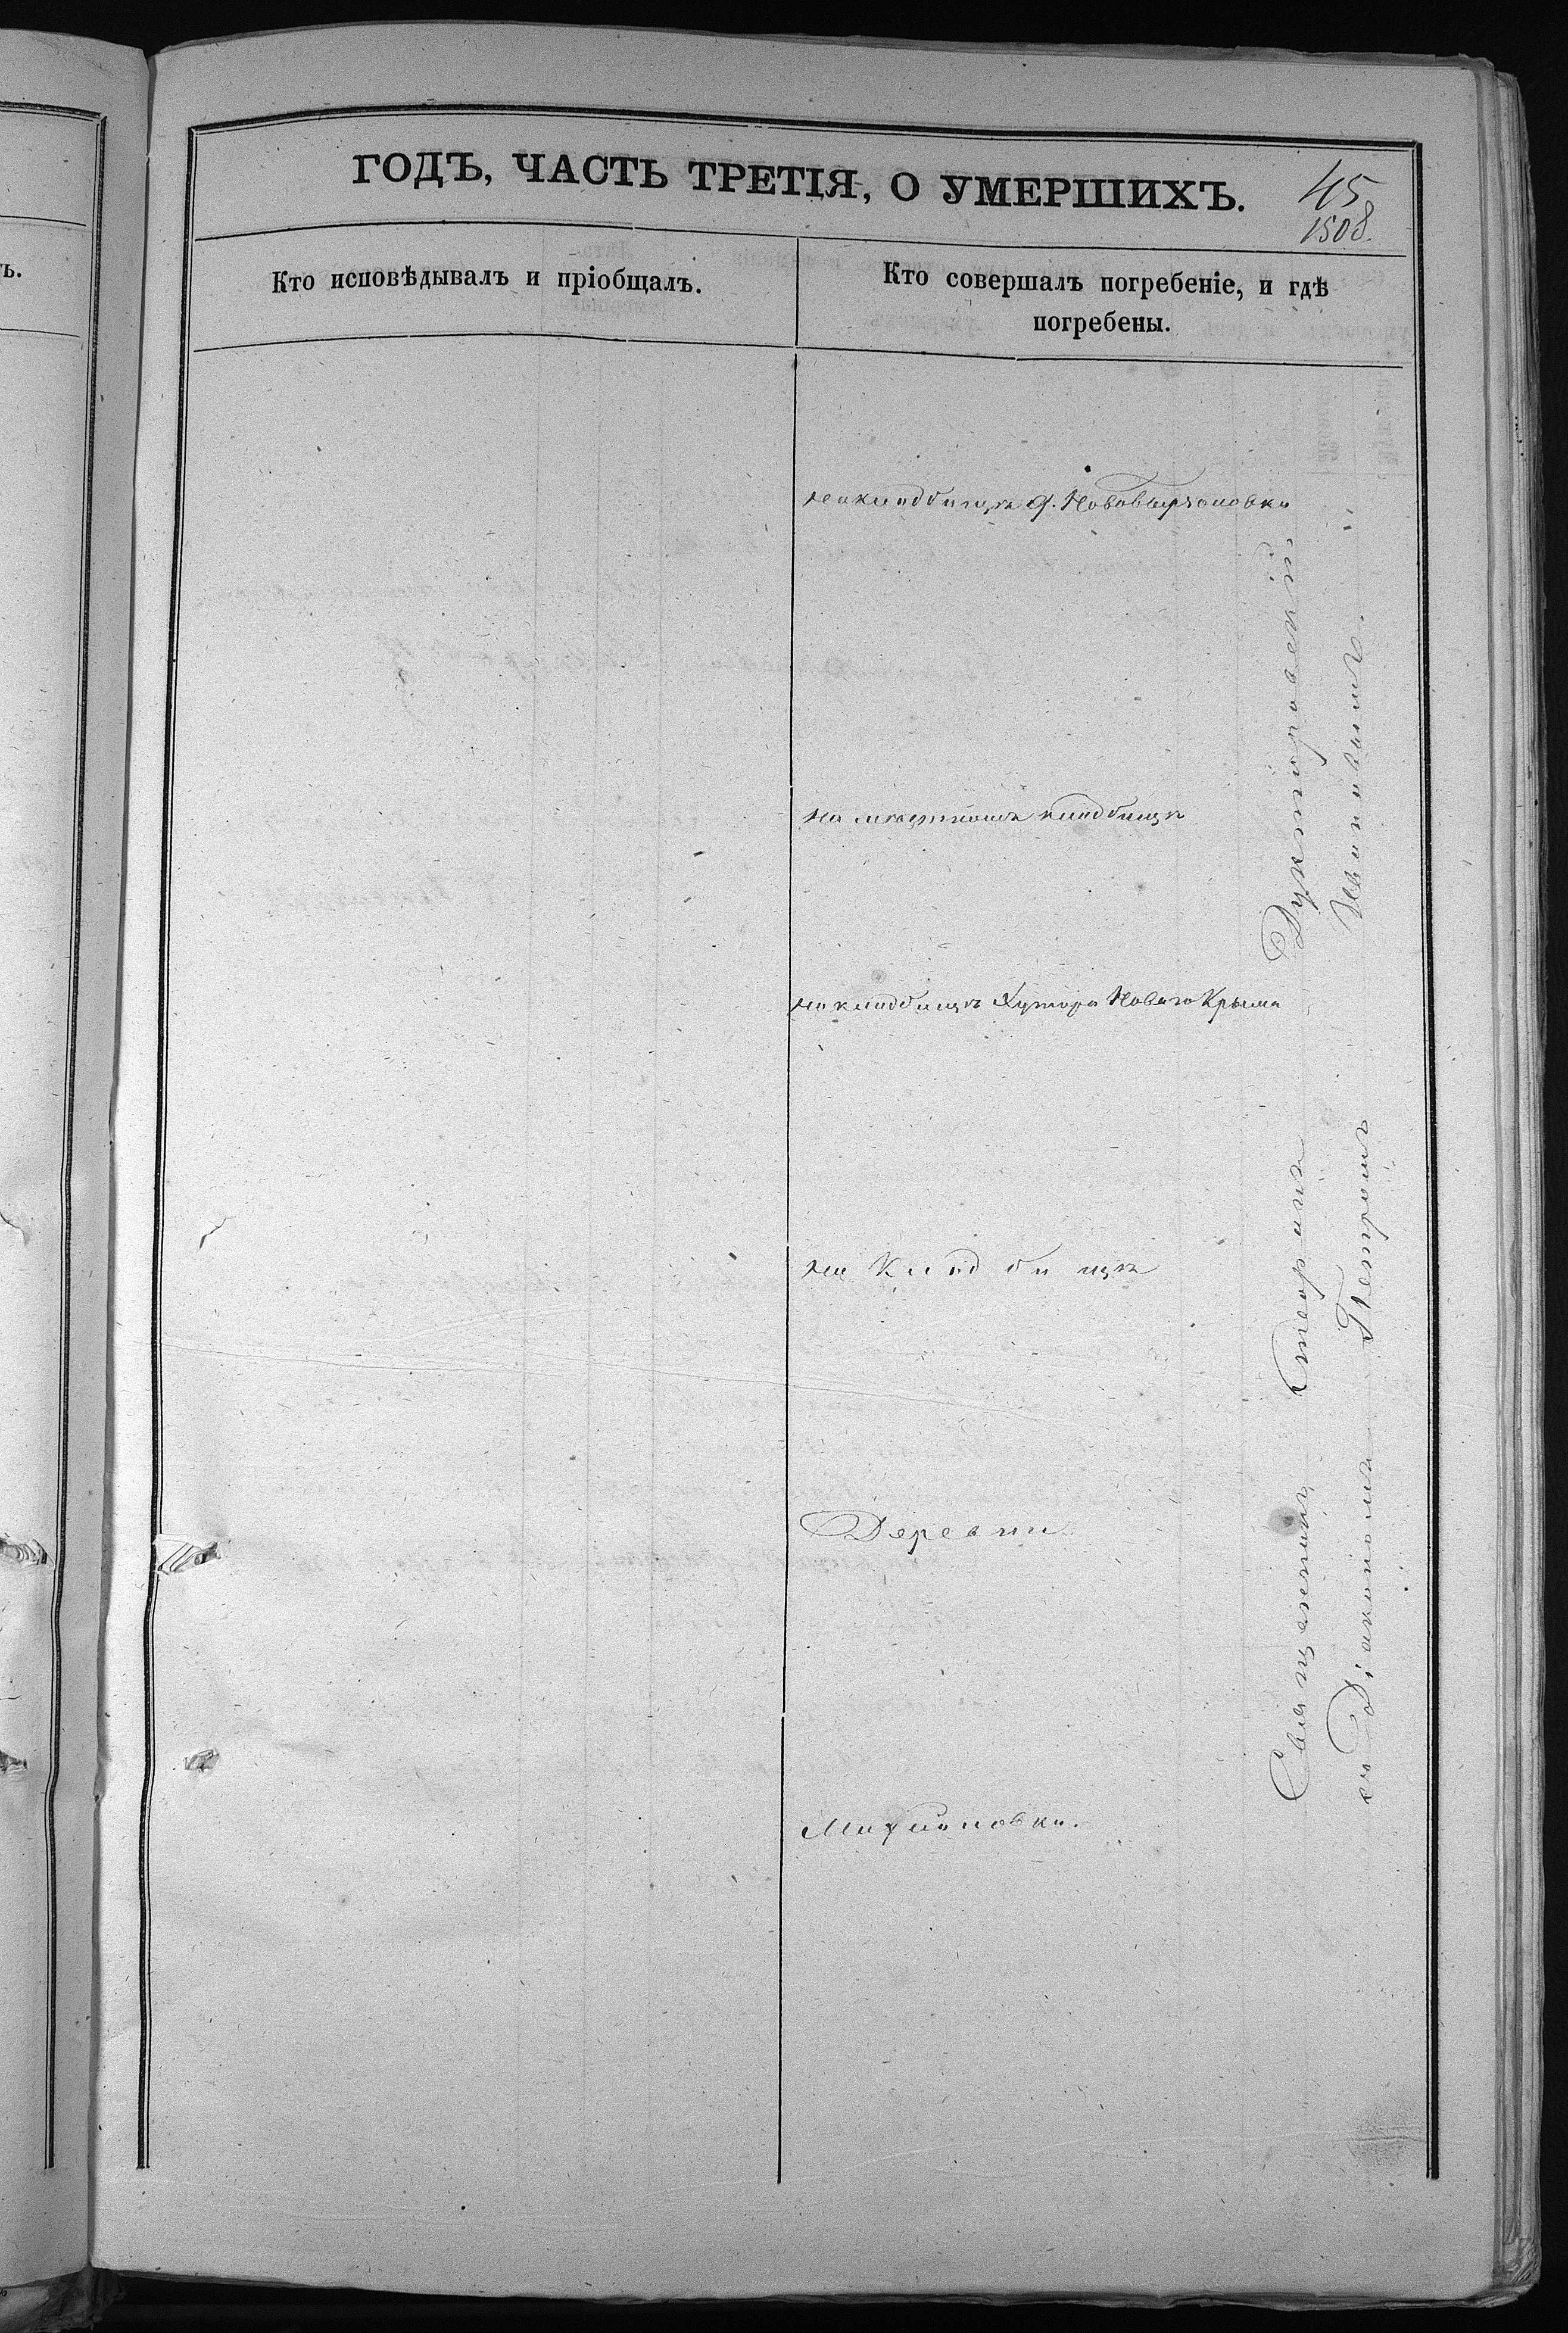 ГОДЪ, ЧАСТЬ ТРЕТІЯ, О УМЕРШИХЪ.
45
1508.
ъ.
Кто исповѣдывалъ и пріобщалъ.
Кто совершалъ погребеніе, и гдѣ
погребены.
на кладбищѣ д.
на мѣстномъ кладбищѣ
на кладбищѣ Хутора Новаго Крыма
на Кладбищѣ
Деревни
Священникъ Стефанъ
съ Діакономъ Петромъ Ивановымъ.